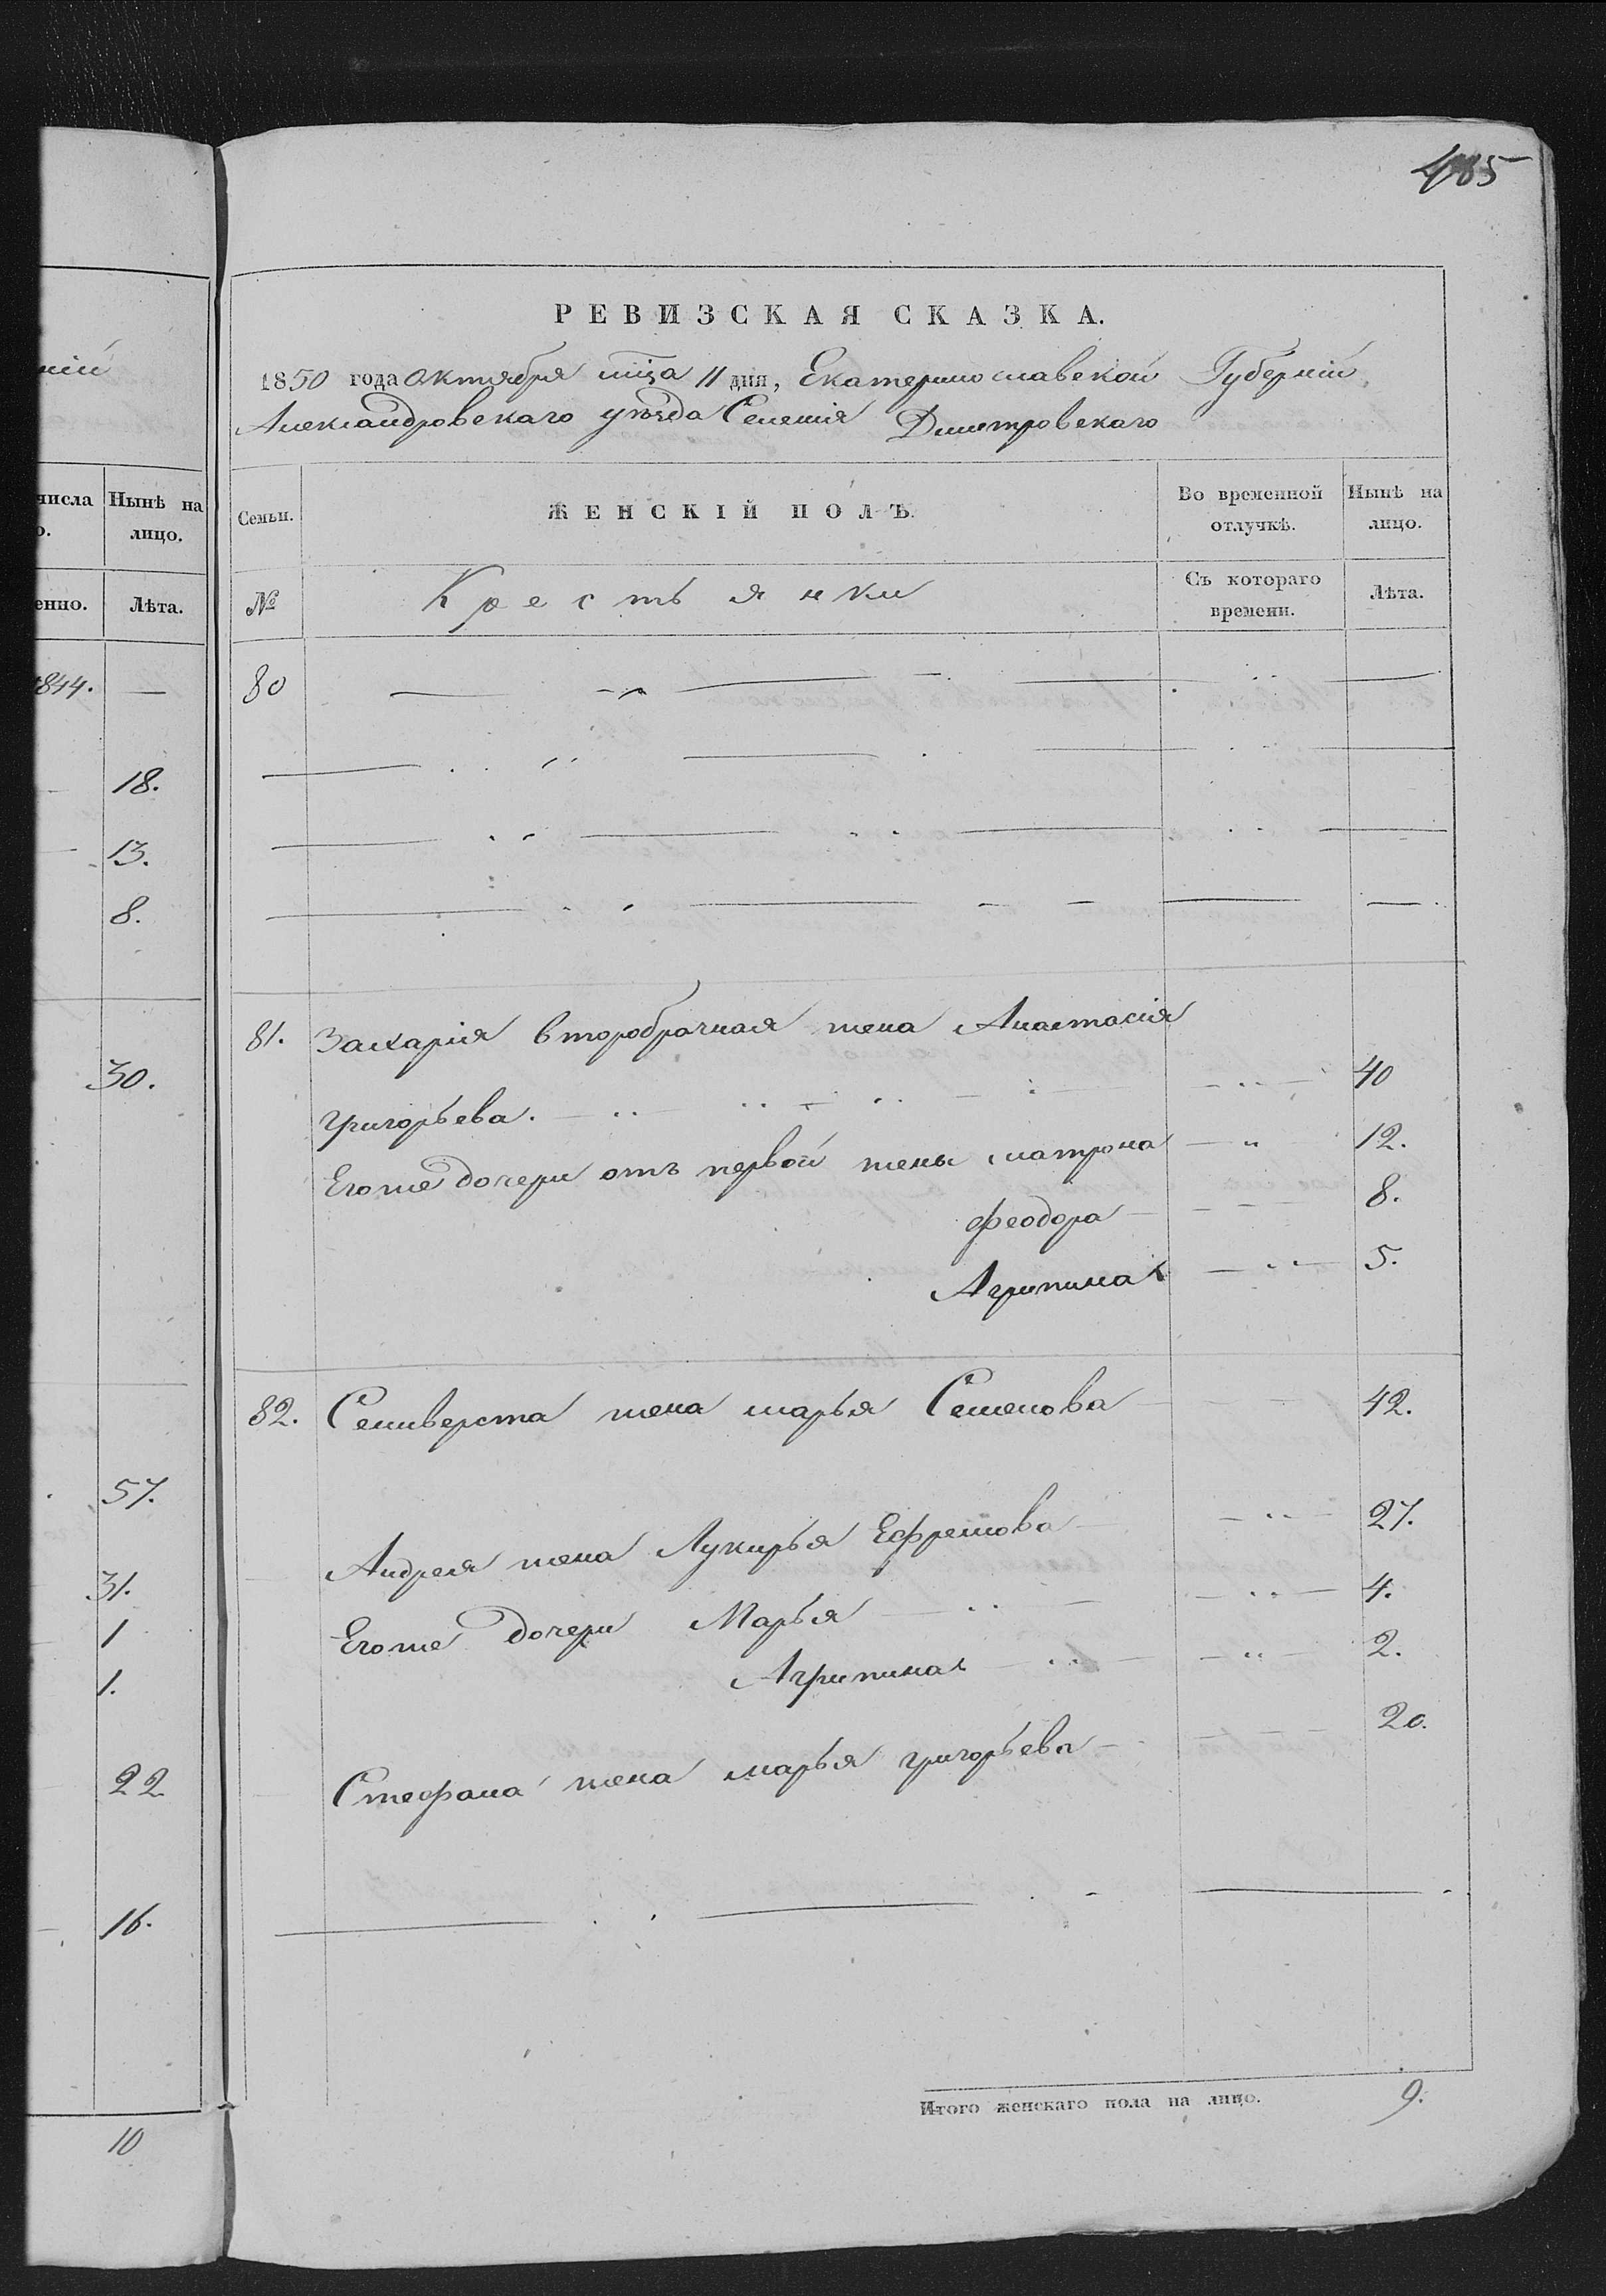 485
РЕВИЗСКАЯ СКАЗКА.
1850 года Октября мца 11 дня, Екатеринославской Губерніи,
Александровскаго уѣзда Селенія Дмитровскаго
числа
Нынѣ на лицо.
Семьи.
ЖЕНСКІЙ ПОЛЪ.
Во временной отлучкѣ.
Нынѣ на лицо.
Лѣта.
№
Крестьянки
Съ котораго времени.
Лѣта.
1844. —
80
18.
13.
8.
81. Захарія второбрачная жена Анастасія
Григорьева. 40
30.
Егоже дочери отъ первой жены Матрона 12.
Феодора 8.
Агрипина 5.
82. Селиверста жена Марья Семенова 42.
57.
Андрея жена Лукирья Ефремова 27.
31.
Егоже дочери Марья 4.
1
Агрипина 2.
1.
Стефана жена Марья Григорьева 20.
22
16.
Итого женскаго пола на лицо. 9.
10